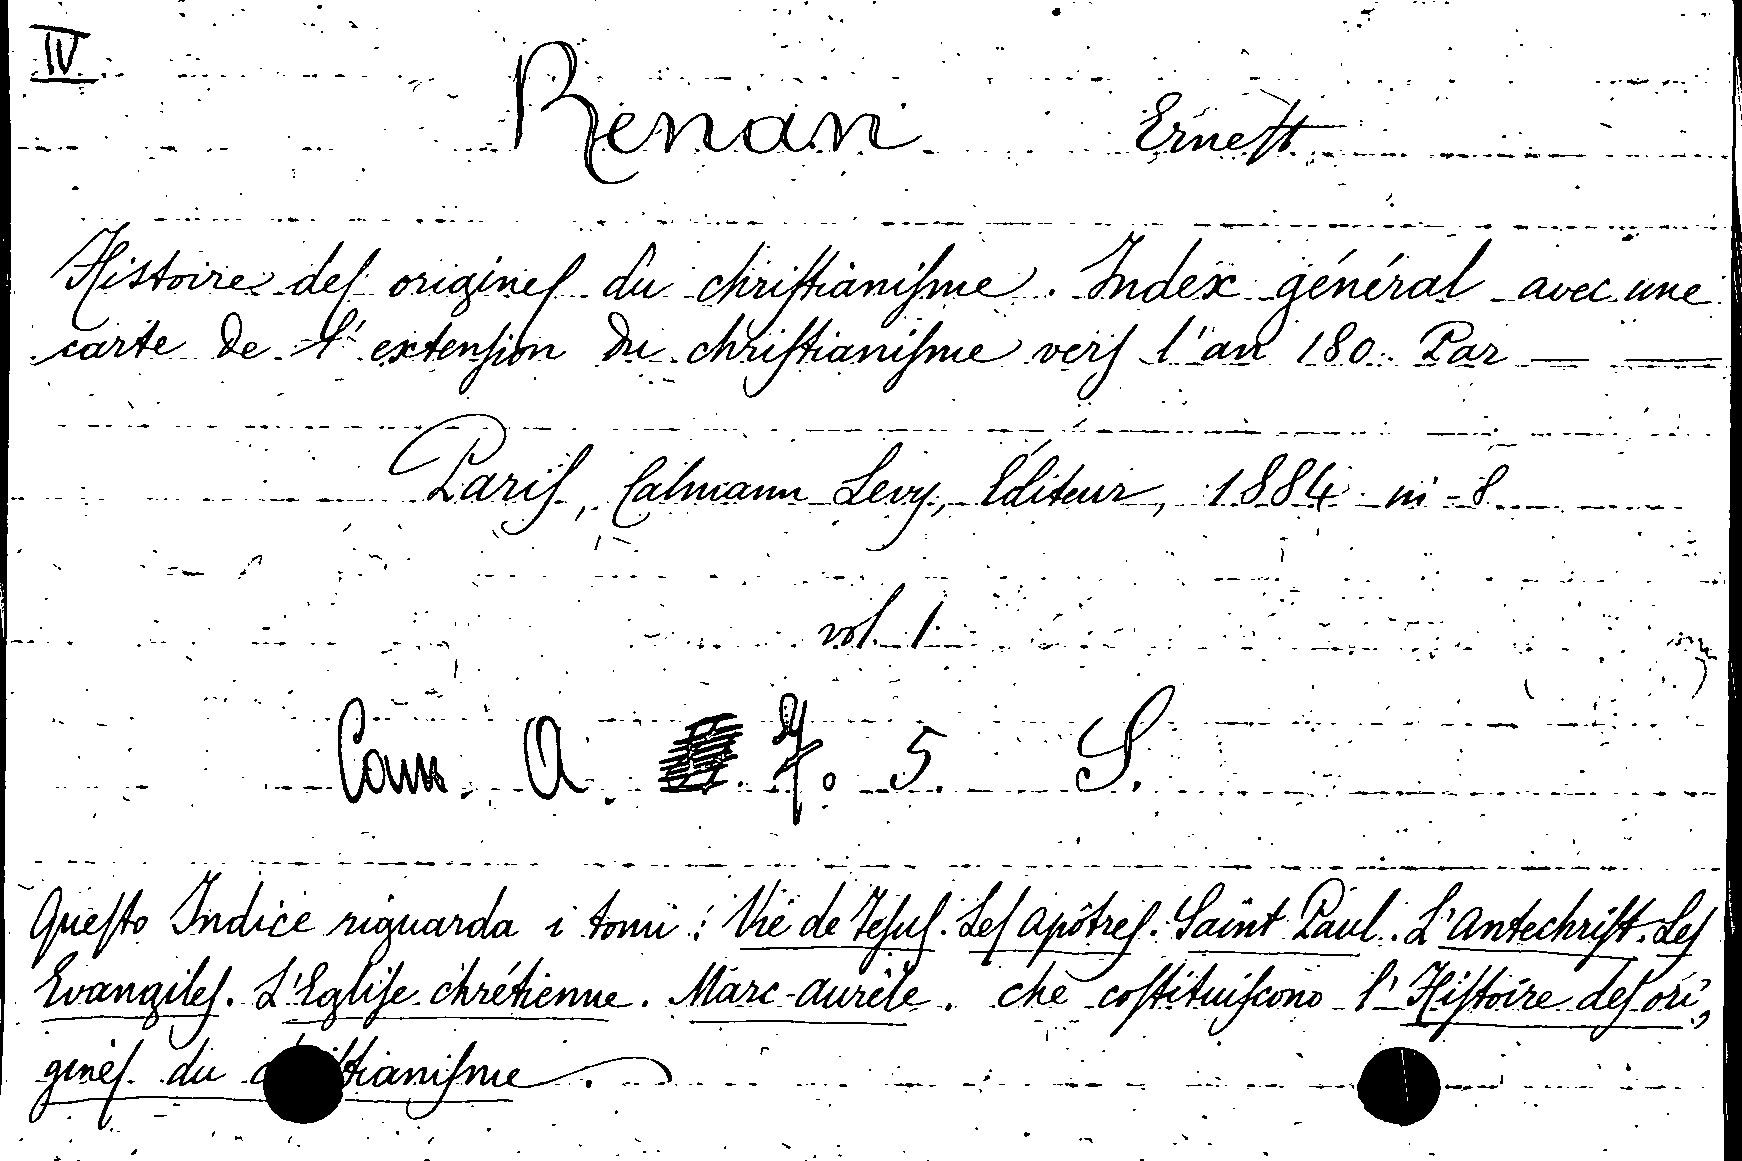 IV
Renan Ernest
Histoire des origines du christianisme. Index général avec une
carte de l'extension du christianisme vers l'an 180. Par — —
Paris, Calmann Levy, Éditeur, 1884 in-8
vol. 1
Cam. A. 5 S.
Questo Indice riguarda i tomi: Vie de Jesus. Les apôtres. Saint Paul. L'Antechrist. Les
Evangiles. L'Eglise chrétienne. Marc-aurèle. che costituiscono l'Histoire des ori,,
gines du christianisme.